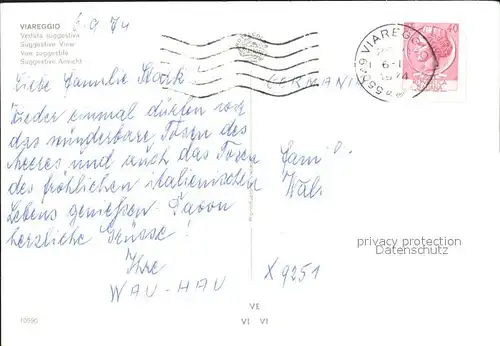 VIAREGGIO
6.9.74
Veduta suggestiva
Suggestive View
Vue suggestife
Suggestive Ansicht
55049 VIAREGGIO
1974
40
GERMANIA
Liebe Familie Stork!
Wieder einmal dürfen wir
das wunderbare Tosen des
Meeres und auch das Tosen
des fröhlichen italienischen
Lebens genießen. Davon
herzliche Grüsse!
Ihre
WAU-HAU
Famil.
X 9251
privacy protection
Datenschutz
VE
VI VI
10590